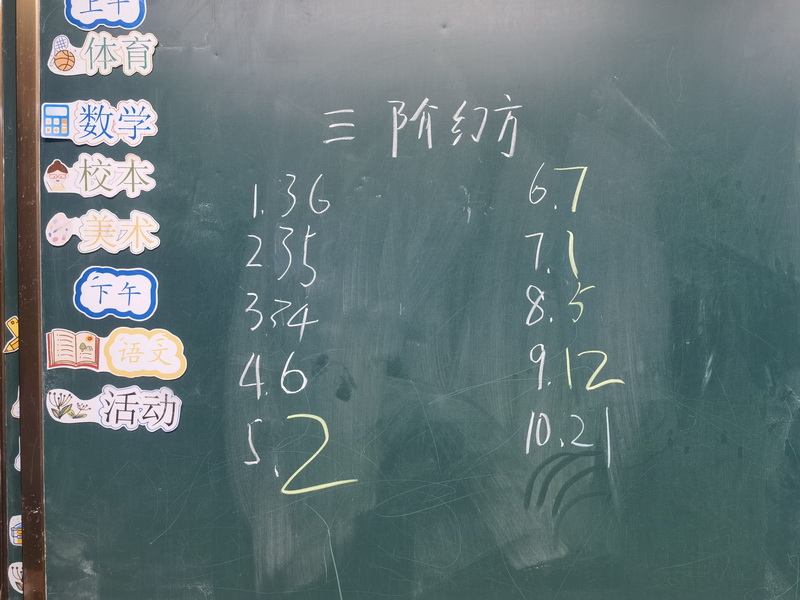 上午
体育
数学
校本
美术
下午
语文
活动
三阶幻方
1.36
2.35
3.34
4.6
5.2
6.7
7.1
8.5
9.12
10.21